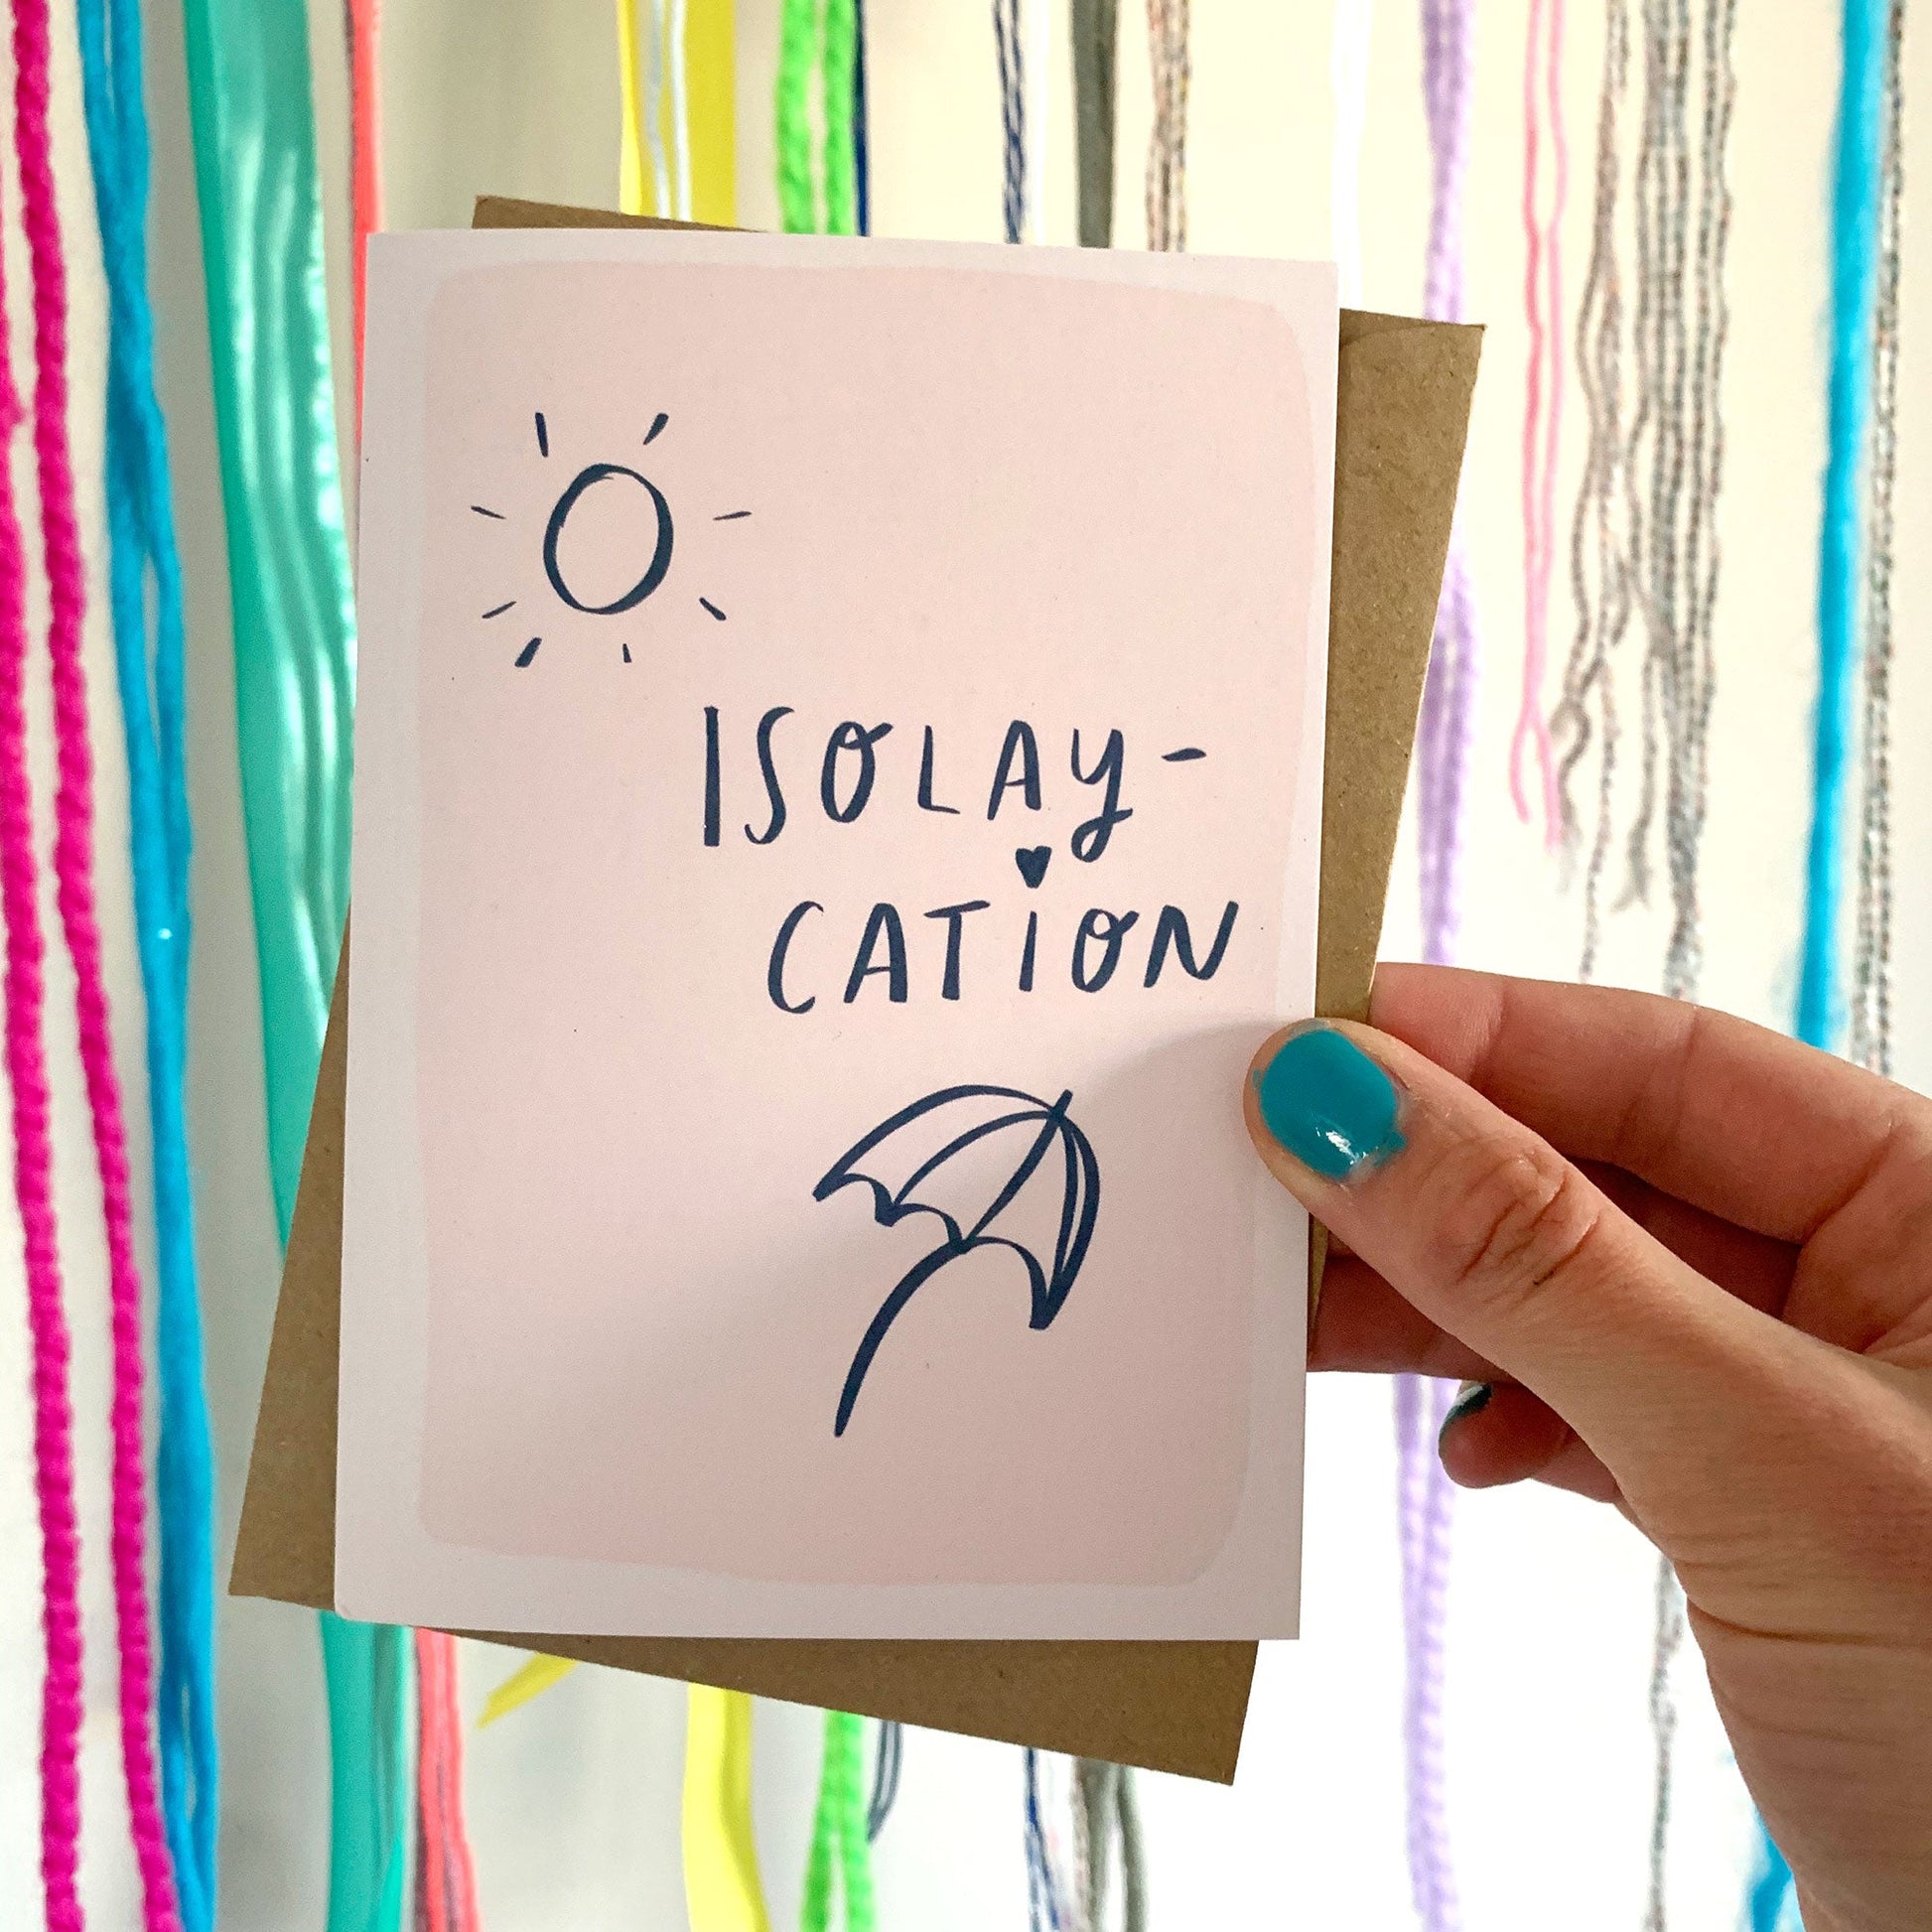 ISOLAY-
CATION